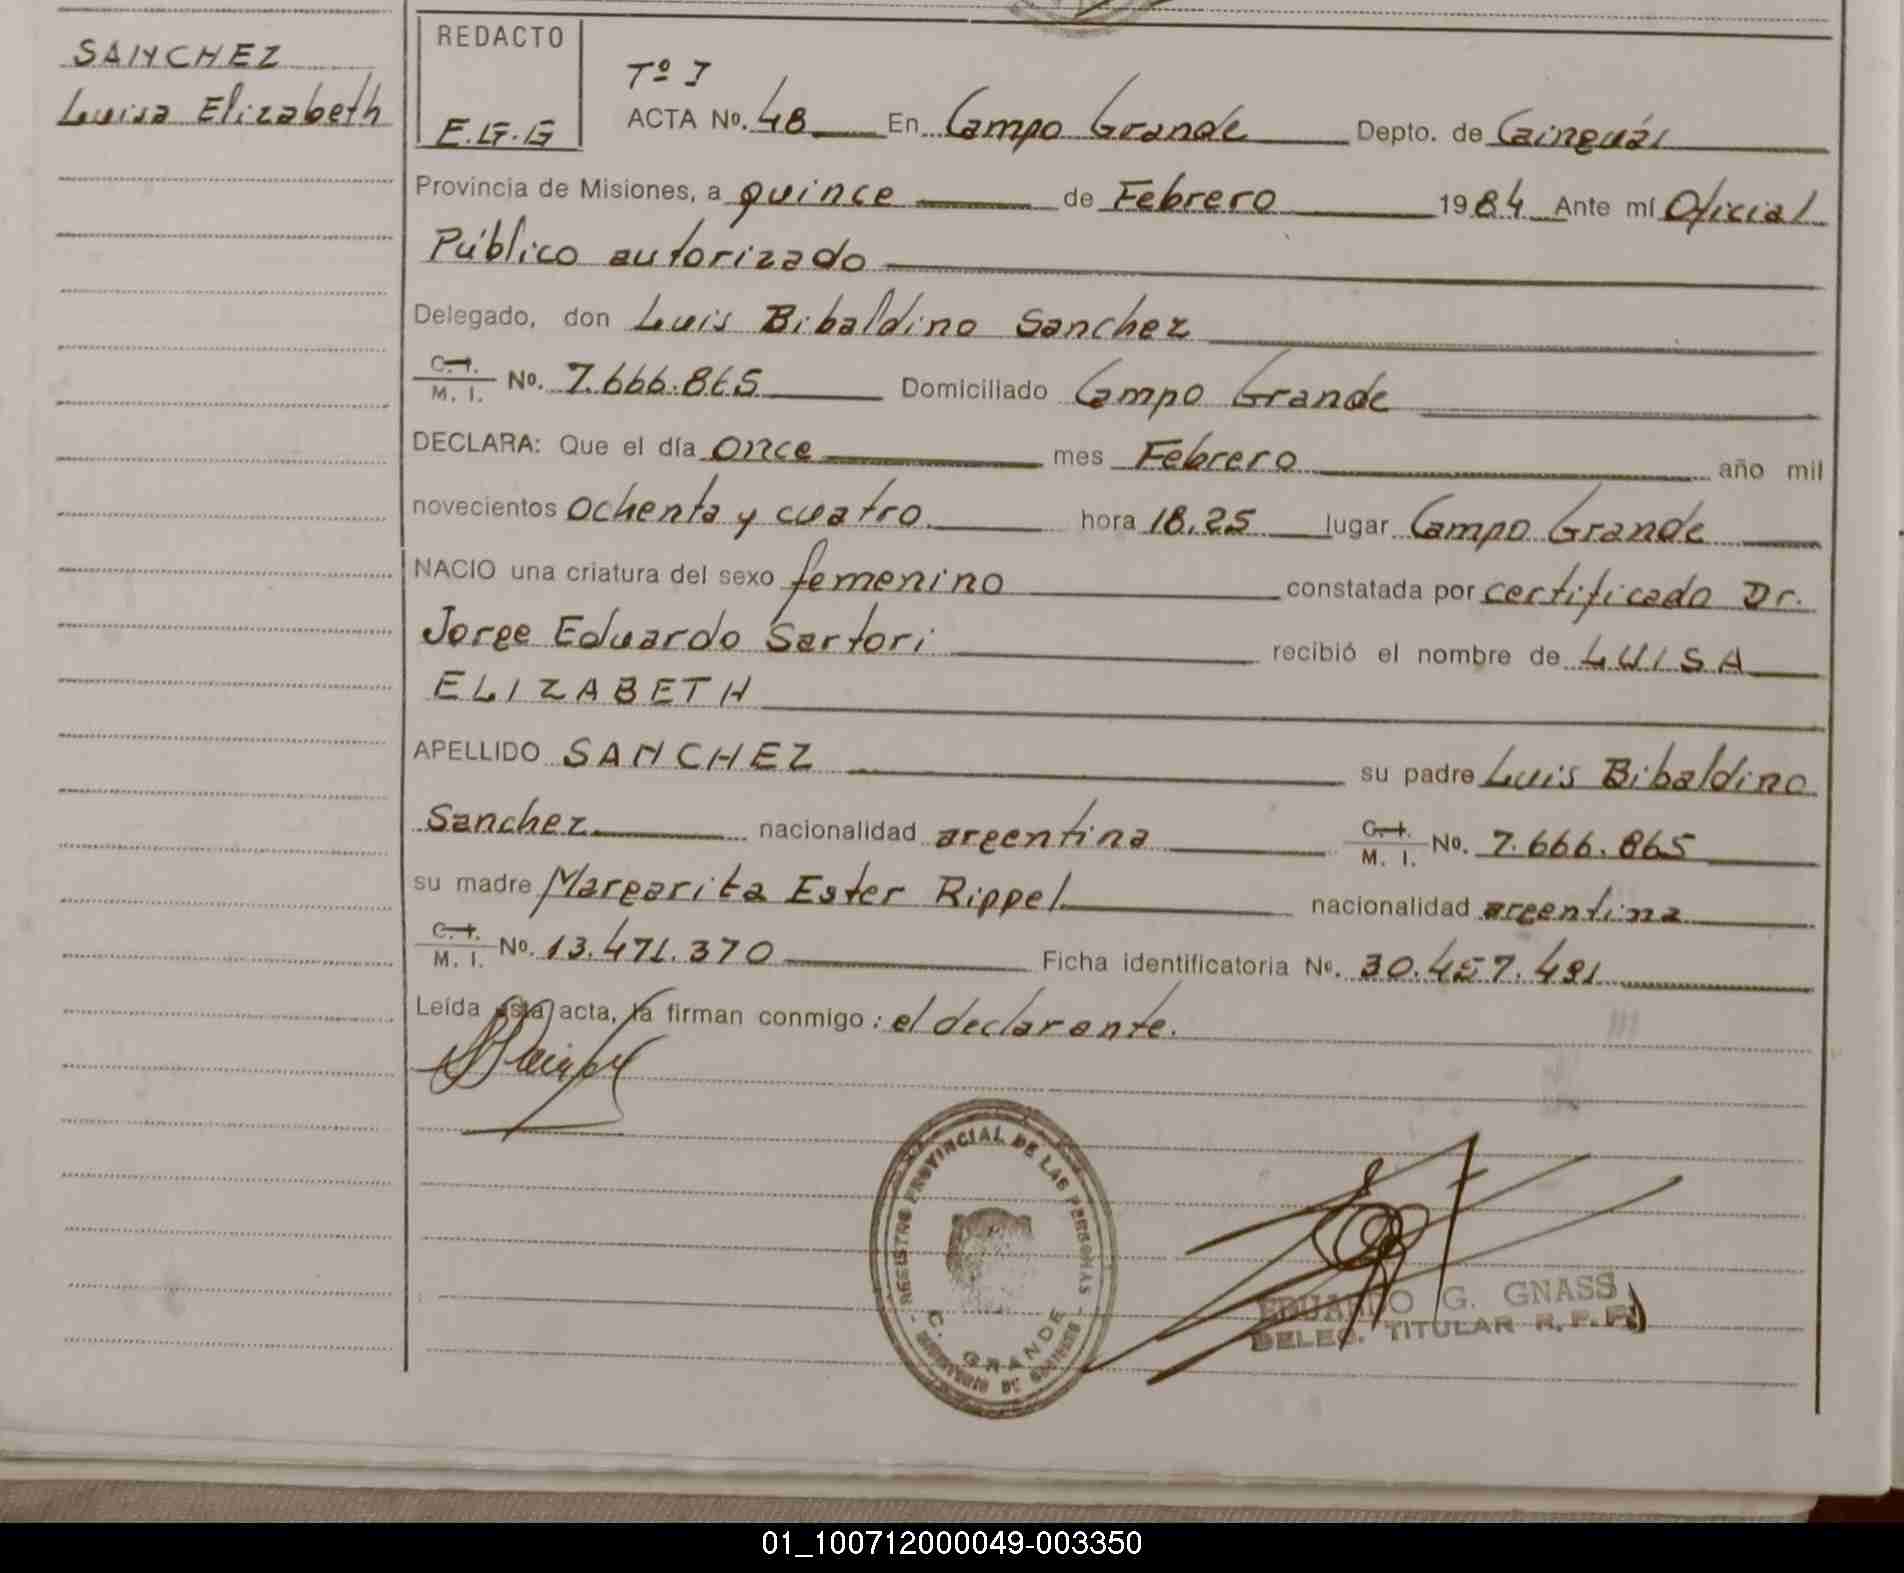 SANCHEZ
Luisa Elizabeth
REDACTO
E.G.G
Tº I
ACTA Nº. 48 En Campo Grande Depto. de Cainguás
Provincia de Misiones, a quince de Febrero 1984 Ante mí Oficial
Público autorizado
Delegado, don Luis Bibaldino Sanchez
C. I. M. I. Nº. 7.666.865 Domiciliado Campo Grande
DECLARA: Que el día once mes Febrero año mil
novecientos ochenta y cuatro hora 18.25 lugar Campo Grande
NACIO una criatura del sexo femenino constatada por certificado Dr.
Jorge Eduardo Sartori recibió el nombre de LUISA
ELIZABETH
APELLIDO SANCHEZ su padre Luis Bibaldino
Sanchez nacionalidad argentina C. I. M. I. Nº. 7.666.865
su madre Margarita Ester Rippel nacionalidad argentina
C. I. M. I. Nº. 13.471.370 Ficha identificatoria Nº. 30.457.491
Leída esta acta, la firman conmigo: el declarante.
REGISTRO PROVINCIAL DE LAS PERSONAS
C. GRANDE
EDUARDO G. GNASS
DELEG. TITULAR R. P. P.
01_100712000049-003350